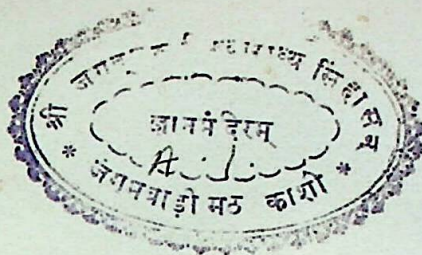 श्री जगद्गुरु सिंहासन
ज्ञानमंदिरम्
* जंगमवाड़ी मठ काशी *